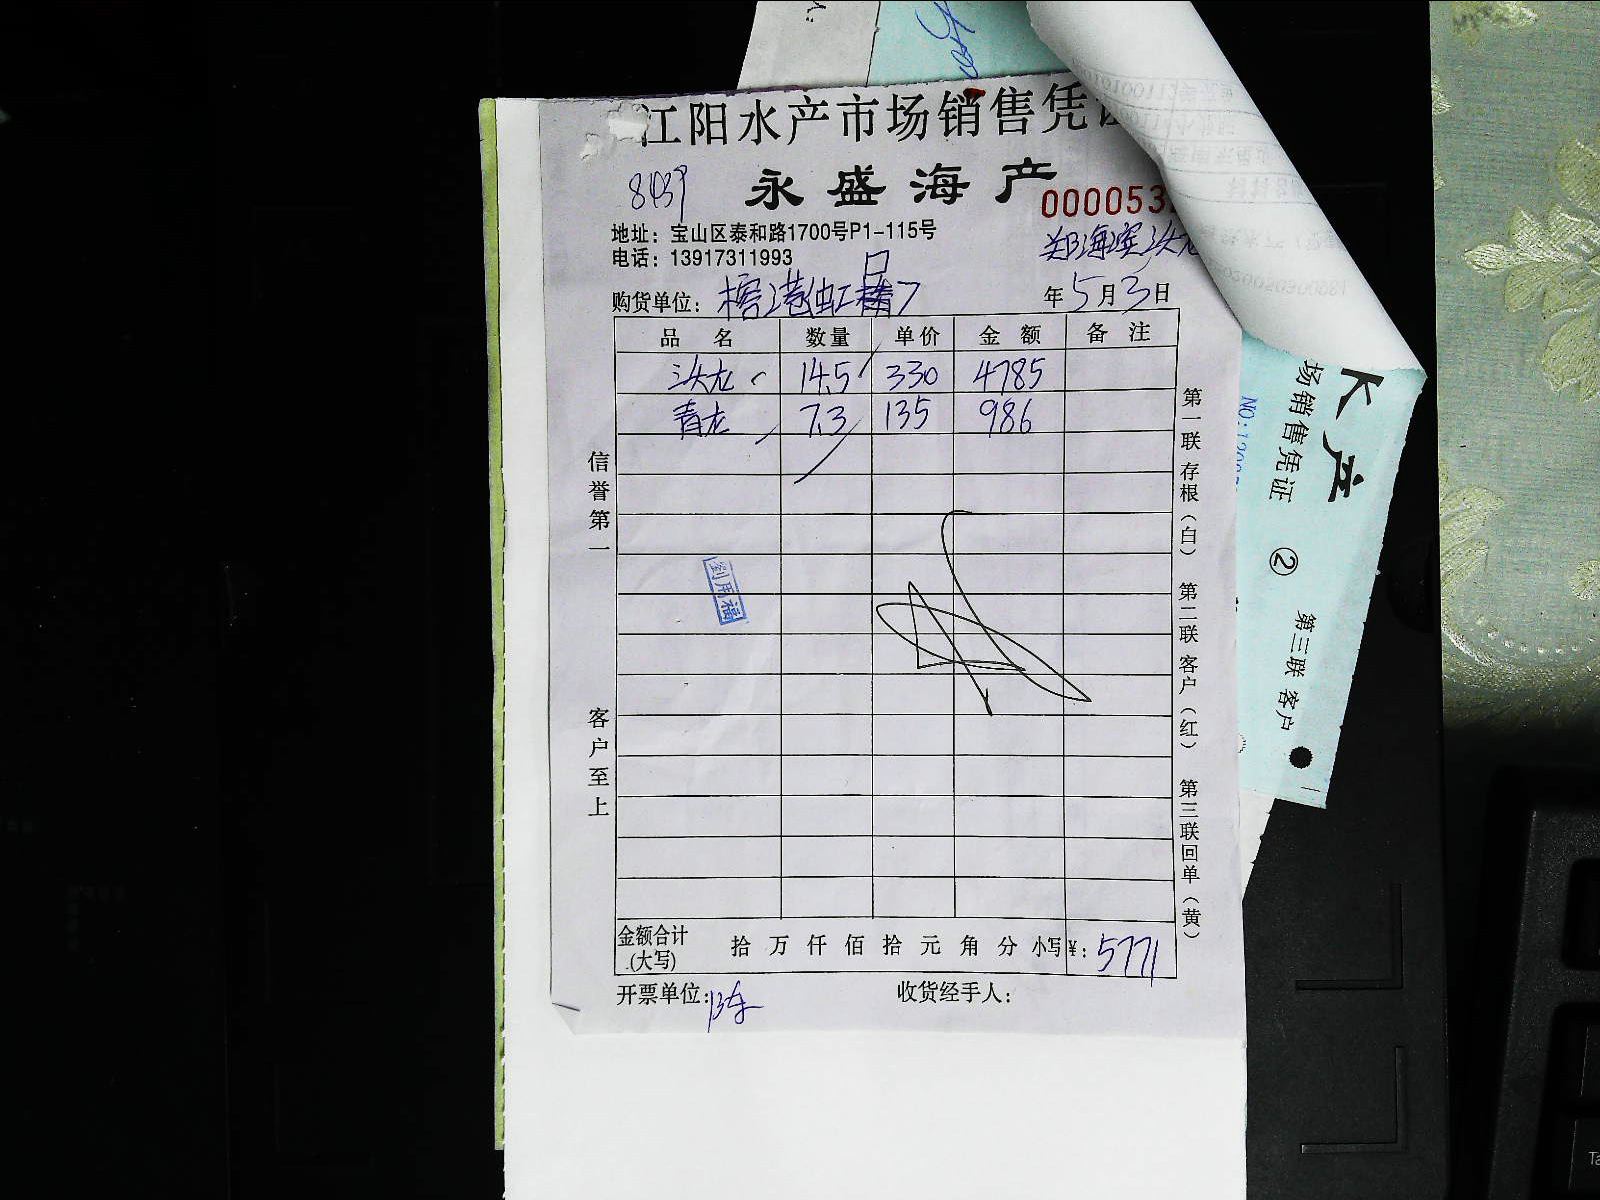 江阳水产市场销售凭
8439
永盛海产
000053
地址：宝山区泰和路1700号P1-115号
电话：13917311993
郑海滨
购货单位：
年5月3日
品名 数量 单价 金额 备注
14.5 330 4785
青龙 7.3 135 986
信誉第一
客户至上
刘用福
第一联存根（白） 第二联客户（红） 第三联回单（黄）
金额合计 (大写) 拾万仟佰拾元角分 小写¥：5771
开票单位：陈
收货经手人：
水产
场销售凭证 ② 第三联 客户